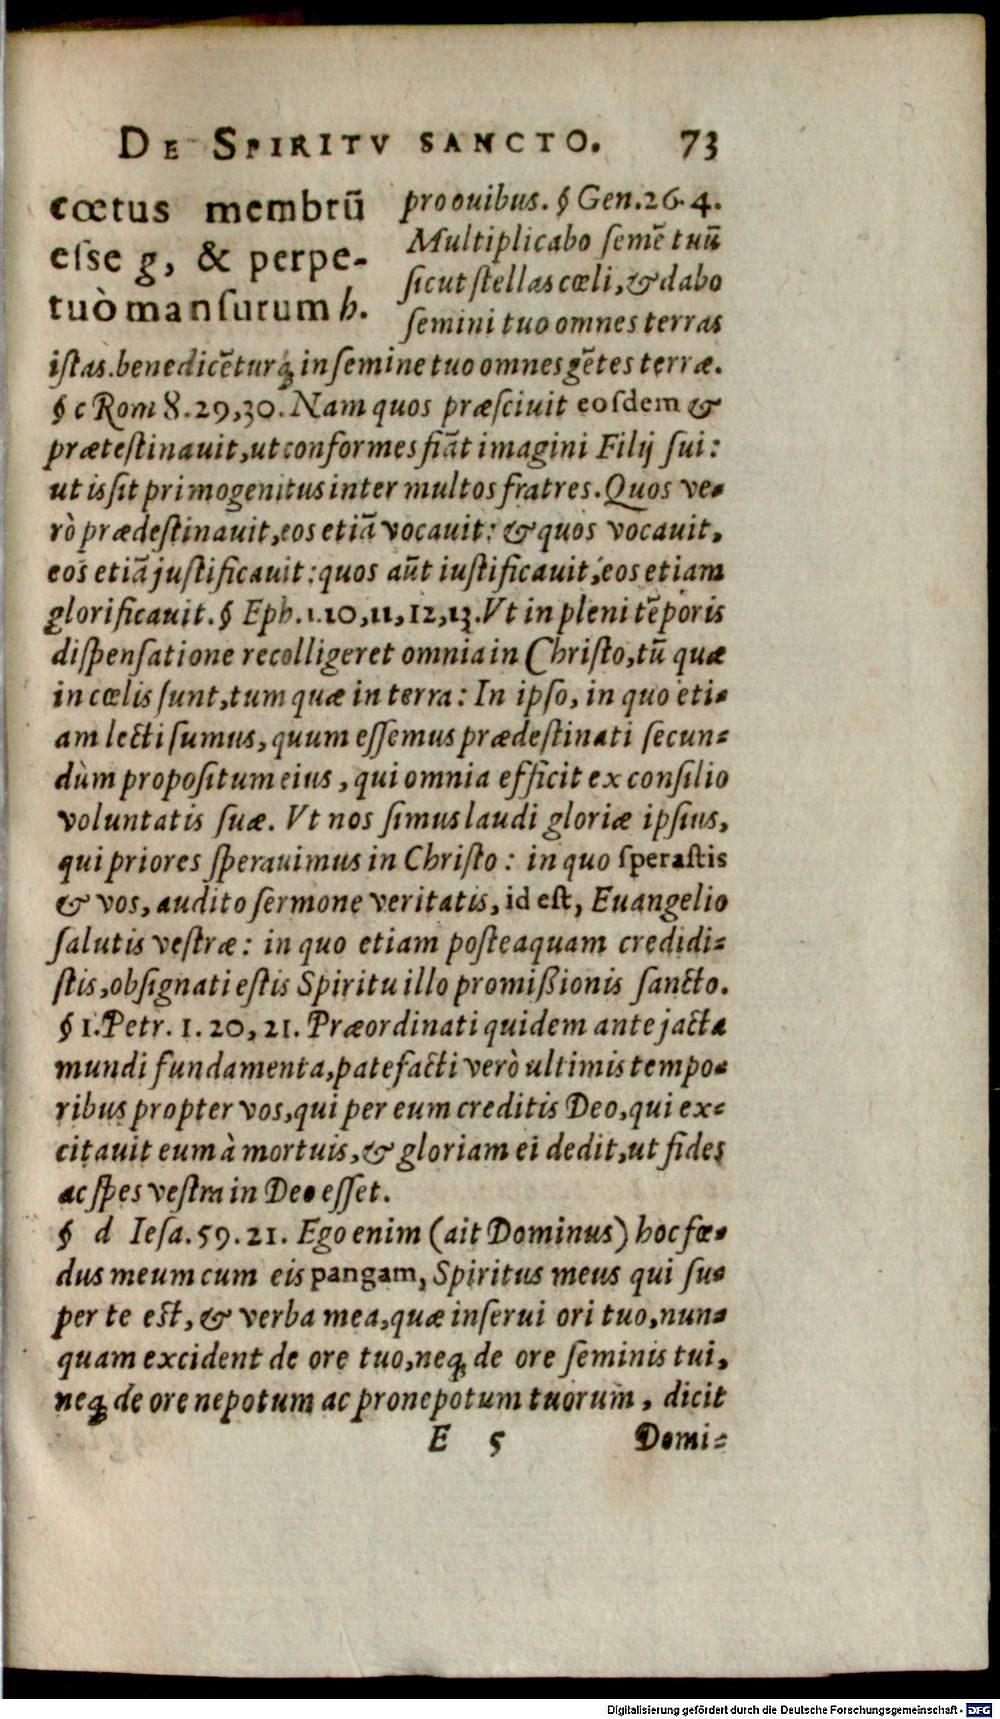 DE SPIRITV SANCTO. 73
cœtus membrũ
eſse g, & perpe-
tuò manſurum h.
pro ovibus. § Gen. 26. 4.
Multiplicabo ſemẽ tuũ
ſicut ſtellas cœli, & dabo
ſemini tuo omnes terras
iſtas. benedicẽturq́; in ſemine tuo omnes gẽtes terræ.
§ c Rom 8. 29, 30. Nam quos præſciuit eoſdem &
præteſtinauit, ut conformes fiãt imagini Filij ſui:
ut is ſit primogenitus inter multos fratres. Quos ve-
rò prædeſtinauit, eos etiã vocauit: & quos vocauit,
eos etiã juſtificauit: quos aũt iuſtificauit, eos etiam
glorificauit. § Eph. 1. 10, 11, 12, 13. Vt in pleni tẽporis
diſpenſatione recolligeret omnia in Chriſto, tũ quæ
in cœlis ſunt, tum quæ in terra: In ipſo, in quo eti-
am lecti ſumus, quum eſſemus prædeſtinati secun-
dùm propoſitum eius, qui omnia efficit ex conſilio
voluntatis ſuæ. Vt nos ſimus laudi gloriæ ipſius,
qui priores ſperauimus in Chriſto: in quo ſperaſtis
& vos, audito ſermone veritatis, id eſt, Euangelio
ſalutis veſtræ: in quo etiam poſteaquam credidi-
ſtis, obſignati eſtis Spiritu illo promißionis ſancto.
§ 1. Petr. 1. 20, 21. Præordinati quidem ante jacta
mundi fundamenta, patefacti verò ultimis tempo-
ribus propter vos, qui per eum creditis Deo, qui ex-
citauit eum à mortuis, & gloriam ei dedit, ut fides
ac ſpes veſtra in Deo eſſet.
§ d Ieſa. 59. 21. Ego enim (ait Dominus) hoc fœ-
dus meum cum eis pangam, Spiritus meus qui ſu-
per te eſt, & verba mea, quæ inſerui ori tuo, nun-
quam excident de ore tuo, neq; de ore ſeminis tui,
neq; de ore nepotum ac pronepotum tuorum, dicit
E 5 Domi-
Digitalisierung gefördert durch die Deutsche Forschungsgemeinschaft - DFG